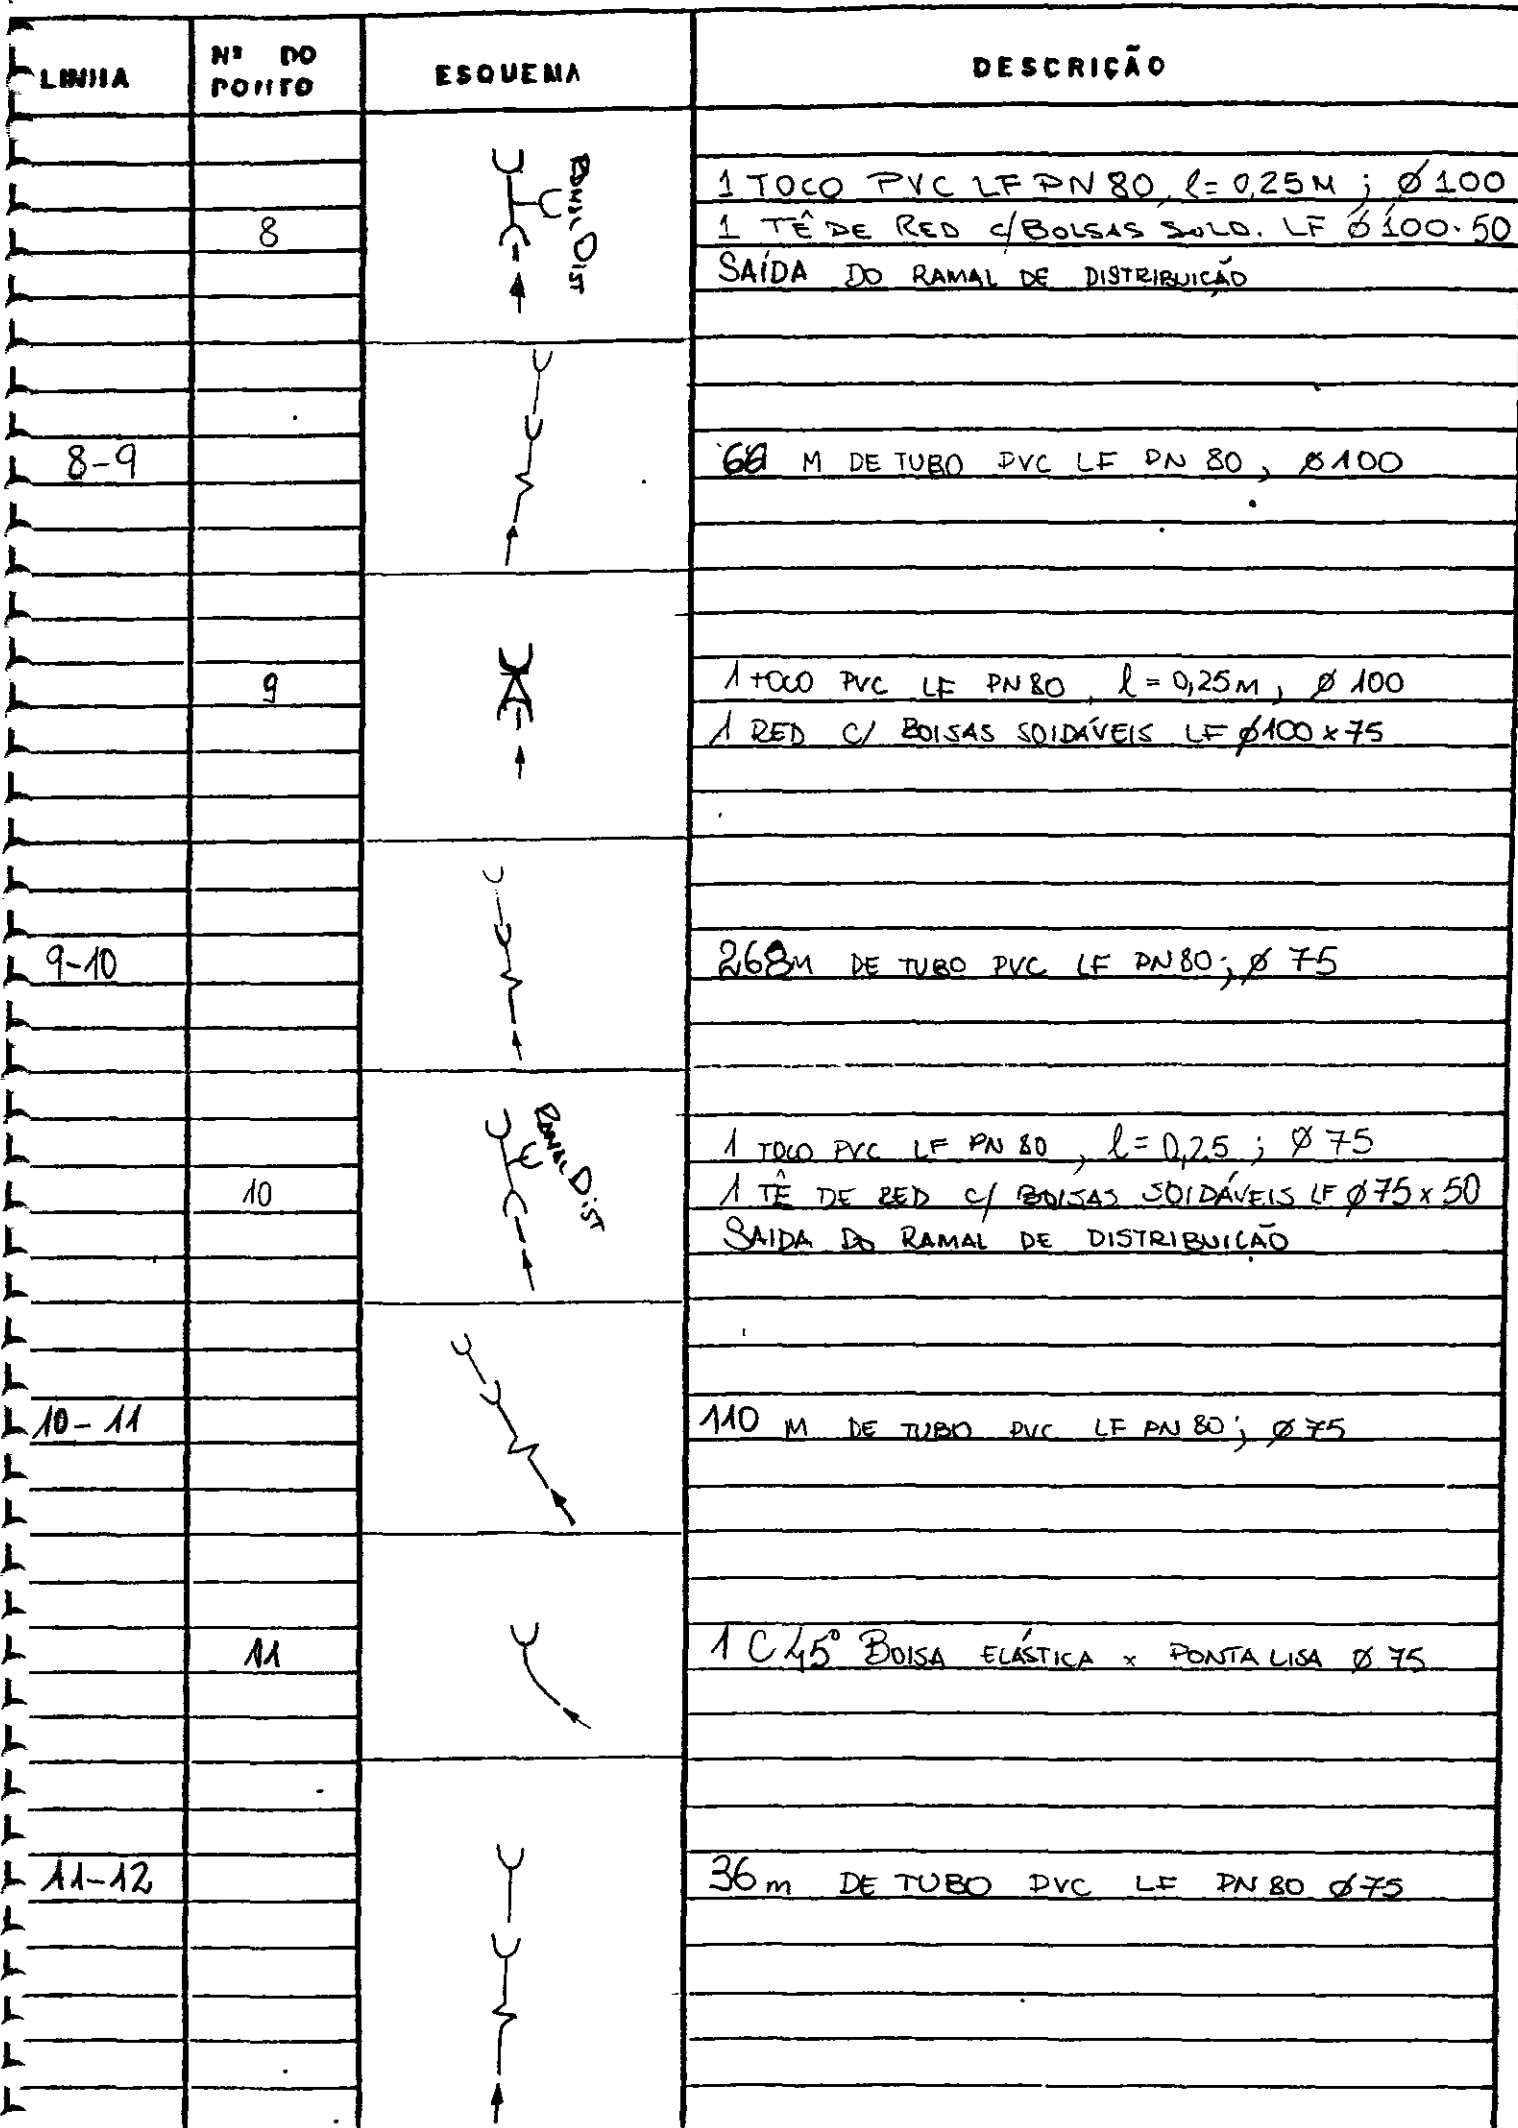 LINHA
Nº DO PONTO
ESQUEMA
DESCRIÇÃO
8
RAMAL DIST
1 TOCO PVC LF PN 80, l= 0,25M ; Ø 100
1 TÊ DE RED C/BOLSAS SOLD. LF Ø 100.50
SAÍDA DO RAMAL DE DISTRIBUIÇÃO
8-9
M DE TUBO PVC LF PN 80, Ø100
9
1 TOCO PVC LF PN80, l= 0,25M, Ø 100
1 RED C/ BOLSAS SOLDÁVEIS LF Ø100 x 75
9-10
268M DE TUBO PVC LF PN80; Ø 75
10
RAMAL DIST
1 TOCO PVC LF PN 80, l= 0,25 ; Ø 75
1 TÊ DE RED C/ BOLSAS SOLDÁVEIS LF Ø75 x 50
SAIDA DO RAMAL DE DISTRIBUICÃO
10-11
110 M DE TUBO PVC LF PN 80; Ø75
11
1 C 45° BOLSA ELÁSTICA x PONTA LISA Ø 75
11-12
36m DE TUBO PVC LF PN 80 Ø75